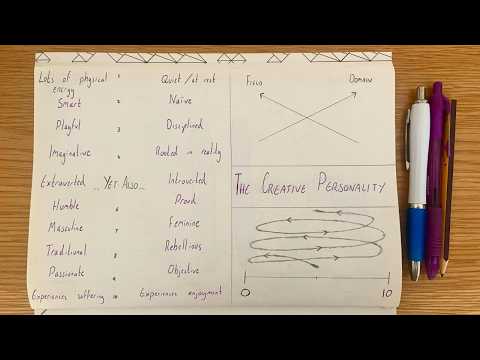 Lots of physical 1 Quiet / at rest
energy
Smart 2 Naive
Playful 3 Disciplined
Imaginative 4 Rooted in reality
Extraverted ...Yet Also... Introverted
Humble 6 Proud
Masculine 7 Feminine
Traditional 8 Rebellious
Passionate 9 Objective
Experiences suffering 10 Experiences enjoyment
Field Domain
The Creative Personality
0 10